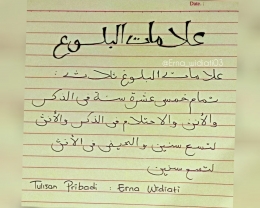 Date :
علامات البلوغ
@Erna_widiati03
علامات البلوغ ثلاث :
تمام خمس عشرة سنة في الذكر
والأنثى والاحتلام في الذكر والأنثى
لتسع سنين والحيض في الأنثى
لتسع سنين
Tulisan Pribadi : Erna Widiati